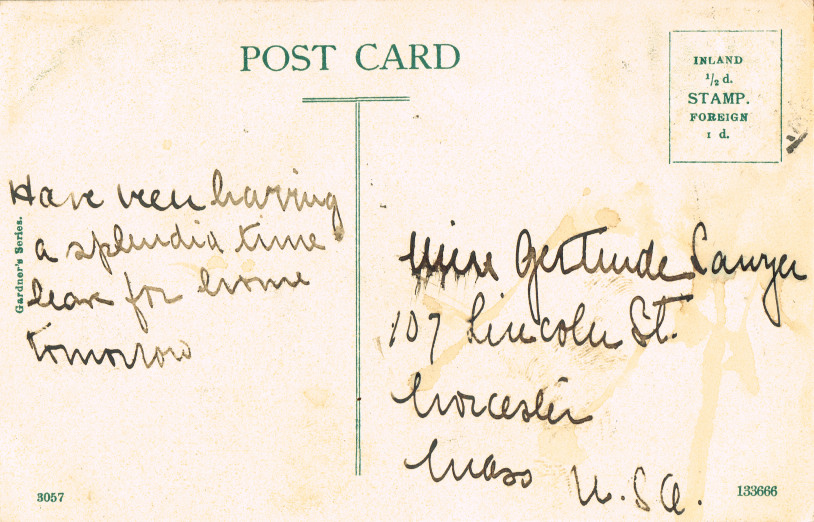 POST CARD
INLAND
½ d.
STAMP.
FOREIGN
1 d.
Have been having
a splendid time
leave for home
tomorrow
Gardner's Series.
Miss Gertrude Sawyer
107 Lincoln St.
Worcester
Mass U.S.A.
3057
133666